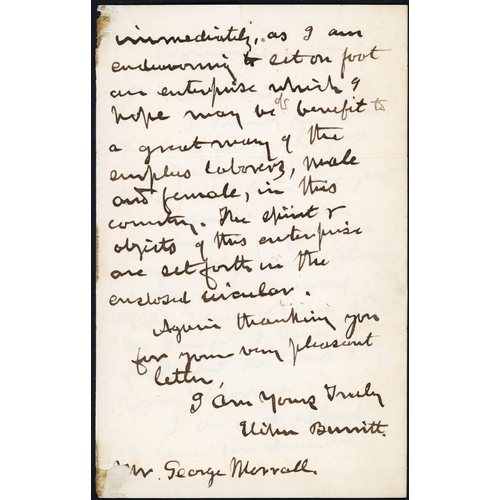 immediately, as I am
endeavoring to set on foot
an enterprise which I
hope may be of benefit to
a great many of the
surplus laborers, male
and female, in this
country. The spirit &
objects of this enterprise
are set forth in the
enclosed circular.
Again thanking you
for your very pleasant
letter,
I am Yours Truly
Elihu Burritt.
Mr. George Morrall.